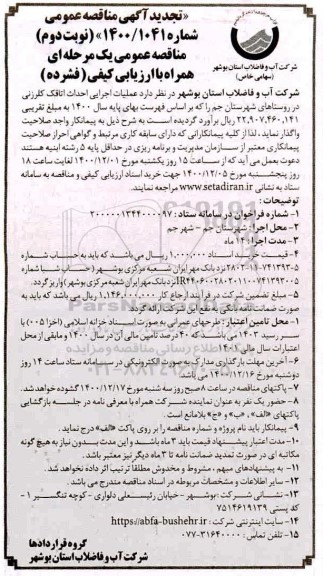 «تجدید آگهی مناقصه عمومی
شماره ۱۴۰۰/۱۰۴۱» (نوبت دوم)
مناقصه عمومی یک مرحله ای
همراه با ارزیابی کیفی (فشرده)
شرکت آب و فاضلاب استان بوشهر
(سهامی خاص)
شرکت آب و فاضلاب استان بوشهر در نظر دارد عملیات اجرایی احداث اتاقک کلرزنی
در روستاهای شهرستان جم را که بر اساس فهرست بهای پایه سال ۱۴۰۰ به مبلغ تقریبی
۲۲,۹۰۷,۴۶۰,۱۴۱ ریال برآورد گردیده است به شرح ذیل به پیمانکار واجد صلاحیت
واگذار نماید، لذا از کلیه پیمانکارانی که دارای سابقه کاری مرتبط و گواهی احراز صلاحیت
پیمانکاری معتبر از سازمان مدیریت و برنامه ریزی در حداقل پایه ۵ رشته ابنیه هستند
دعوت بعمل می آید که از ساعت ۱۵ روز یکشنبه مورخ ۱۴۰۰/۱۲/۰۱ لغایت ساعت ۱۸
روز پنجشنبه مورخ ۱۴۰۰/۱۲/۰۵ جهت خرید اسناد ارزیابی کیفی و مناقصه به سامانه
ستاد به نشانی www.setadiran.ir مراجعه نمایند.
توضیحات :
۱- شماره فراخوان در سامانه ستاد : ۲۰۰۰۰۰۱۳۴۴۰۰۰۰۹۷
۲- محل اجرا : شهرستان جم – شهر جم
۳- مدت اجرا : ۱۲ ماه
۴- قیمت خرید اسناد ۱,۰۰۰,۰۰۰ ریال می باشد که باید به حساب شماره
نزد بانک مهر ایران شعبه مرکزی بوشهر ( حساب شبا شماره
نزد بانک مهر ایران شعبه مرکزی بوشهر) واریز گردد.
۵- مبلغ تضمین شرکت در فرآیند ارجاع کار ۱,۱۴۶,۰۰۰,۰۰۰ ریال می باشد که باید به
صورت ضمانت نامه بانکی به نفع این شرکت ارائه گردد.
۱- محل تامین اعتبار : طرحهای عمرانی به صورت اسناد خزانه اسلامی (اخزا ۰۰۵) با
سر رسید ۱۴۰۳ می باشد که ۴۰ درصد تامین مالی آن در سال ۱۴۰۰ و مابقی از محل
اعتبارات سال مالی ۱۴۰۱
۶- آخرین مهلت بارگذاری مدارک بصورت الکترونیکی در سامانه ستاد ساعت ۱۴ روز
دوشنبه مورخ ۱۴۰۰/۱۲/۱۶ می باشد.
۷- پاکتهای مناقصه در ساعت ۸ صبح روز سه شنبه مورخ ۱۴۰۰/۱۲/۱۷ گشوده خواهد شد.
۸- حضور یک نفر به عنوان نماینده شرکت همراه با معرفی نامه در جلسه بازگشایی
پاکتهای «الف»، «ب» و «ج» بلامانع است.
۹- پیمانکار باید نام پروژه و شماره مناقصه را بر روی پاکت «الف» درج نماید.
۱۰- مدت اعتبار پیشنهاد قیمت باید ۳ ماه باشد و این مدت بدون نیاز به هیچ گونه
مکاتبه ای در صورت تمدید ضمانت نامه تا ۳ ماه دیگر نیز معتبر باشد.
۱۱- به پیشنهادهای مبهم، مشروط و مخدوش مطلقاً ترتیب اثر داده نخواهد شد.
۱۲- سایر اطلاعات و مشخصات مربوطه در اسناد مناقصه مندرج می باشد.
۱۳- نشانی شرکت : بوشهر – خیابان رئیسعلی دلواری – کوچه تنگسیر ۱ –
کد پستی ۷۵۱۴۶۱۹۱۳۹
۱۴- سایت اینترنتی شرکت : https://abfa-bushehr.ir
۱۵- تلفن تماس : ۰۷۷-۳۱۶۴۰۰۰۰
گروه قراردادها
شرکت آب و فاضلاب استان بوشهر